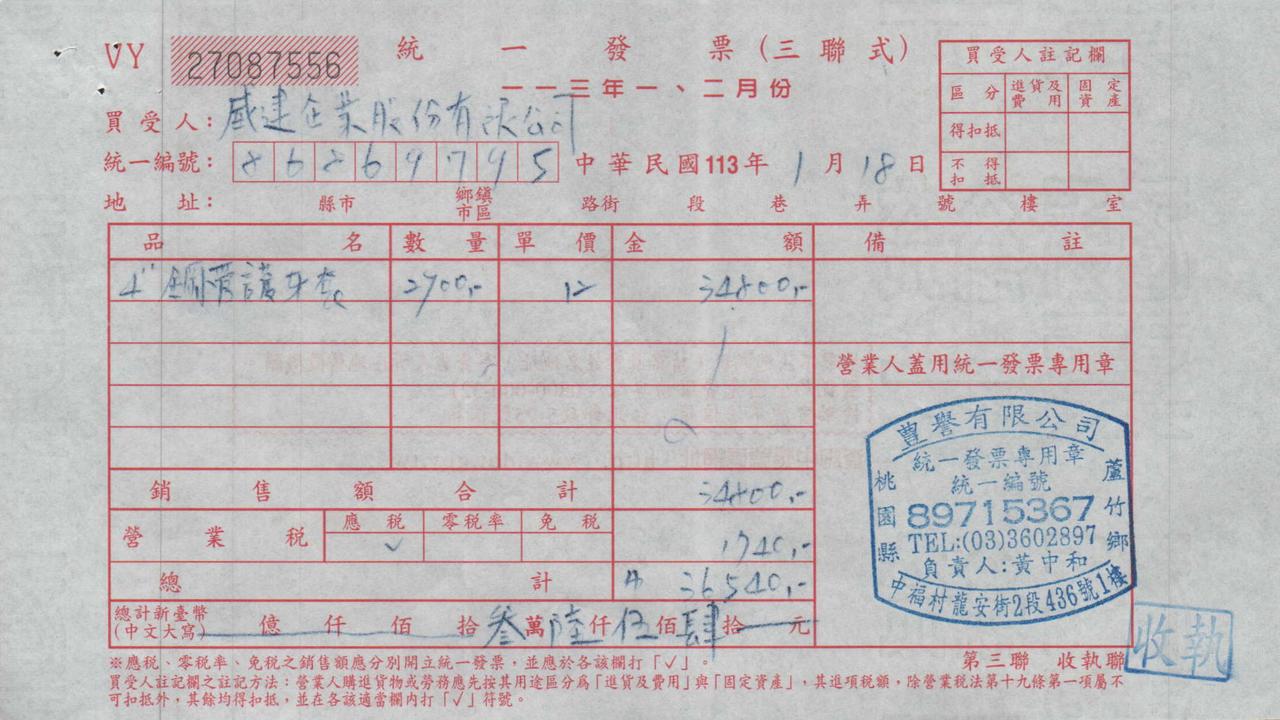 VY 27087556 統一發票(三聯式)
一一三年一、二月份
買受人註記欄
區分 進貨及費用 固定資產
得扣抵
不得扣抵
買受人: 威建企業股份有限公司
統一編號: 86869795 中華民國113年1月18日
地址: 縣市 鄉鎮市區 路街 段 巷 弄 號 樓 室
品名 數量 單價 金額 備註
4" 鋼管護牙套 2900,- 12 34800,-
營業人蓋用統一發票專用章
銷售額合計 34800,-
營業稅 應稅 零稅率 免稅
✓ 1740,-
總計 36540,-
總計新臺幣(中文大寫) 億 仟 佰 拾 叁萬陸仟伍佰肆拾 元
豐譽有限公司
統一發票專用章
統一編號
89715367
TEL:(03)3602897
負責人:黃中和
桃園縣 蘆竹鄉
中福村龍安街2段436號1樓
※應稅、零稅率、免稅之銷售額應分別開立統一發票,並應於各該欄打「✓」。
第三聯 收執聯
收執
買受人註記欄之註記方法:營業人購進貨物或勞務應先按其用途區分為「進貨及費用」與「固定資產」,其進項稅額,除營業稅法第十九條第一項屬不
可扣抵外,其餘均得扣抵,並在各該適當欄內打「✓」符號。